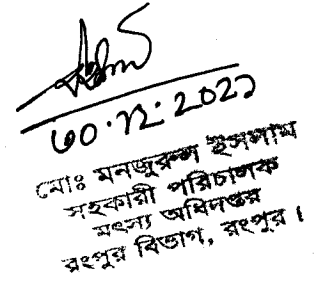 ৩০.১২.২০২১
মোঃ মনজুরুল ইসলাম
সহকারী পরিচালক
মৎস্য অধিদপ্তর
রংপুর বিভাগ, রংপুর।